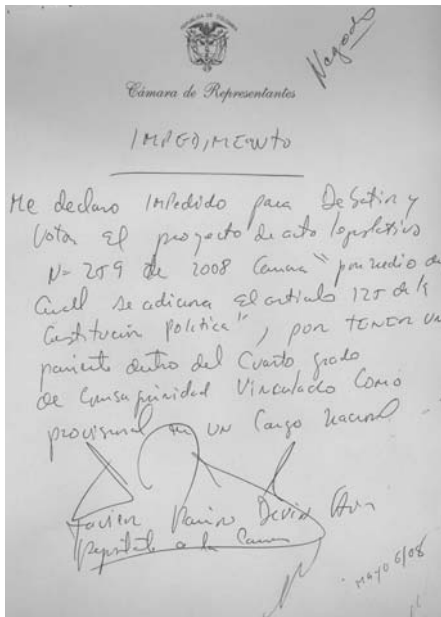 REPUBLICA DE COLOMBIA
Negado
Cámara de Representantes
IMPEDIMENTO
Me declaro Impedido para Debatir y
Votar el proyecto de acto legislativo
N= 259 de 2008 Camara "por medio de
Cual se adiciona el articulo 125 de la
Constitución política", por TENER un
pariente dentro del Cuarto grado
de Consaguinidad Vinculado Como
provisional en un Cargo Nacional
Javier Ramiro Devia
Representante a la Camara
MAYO 6/08